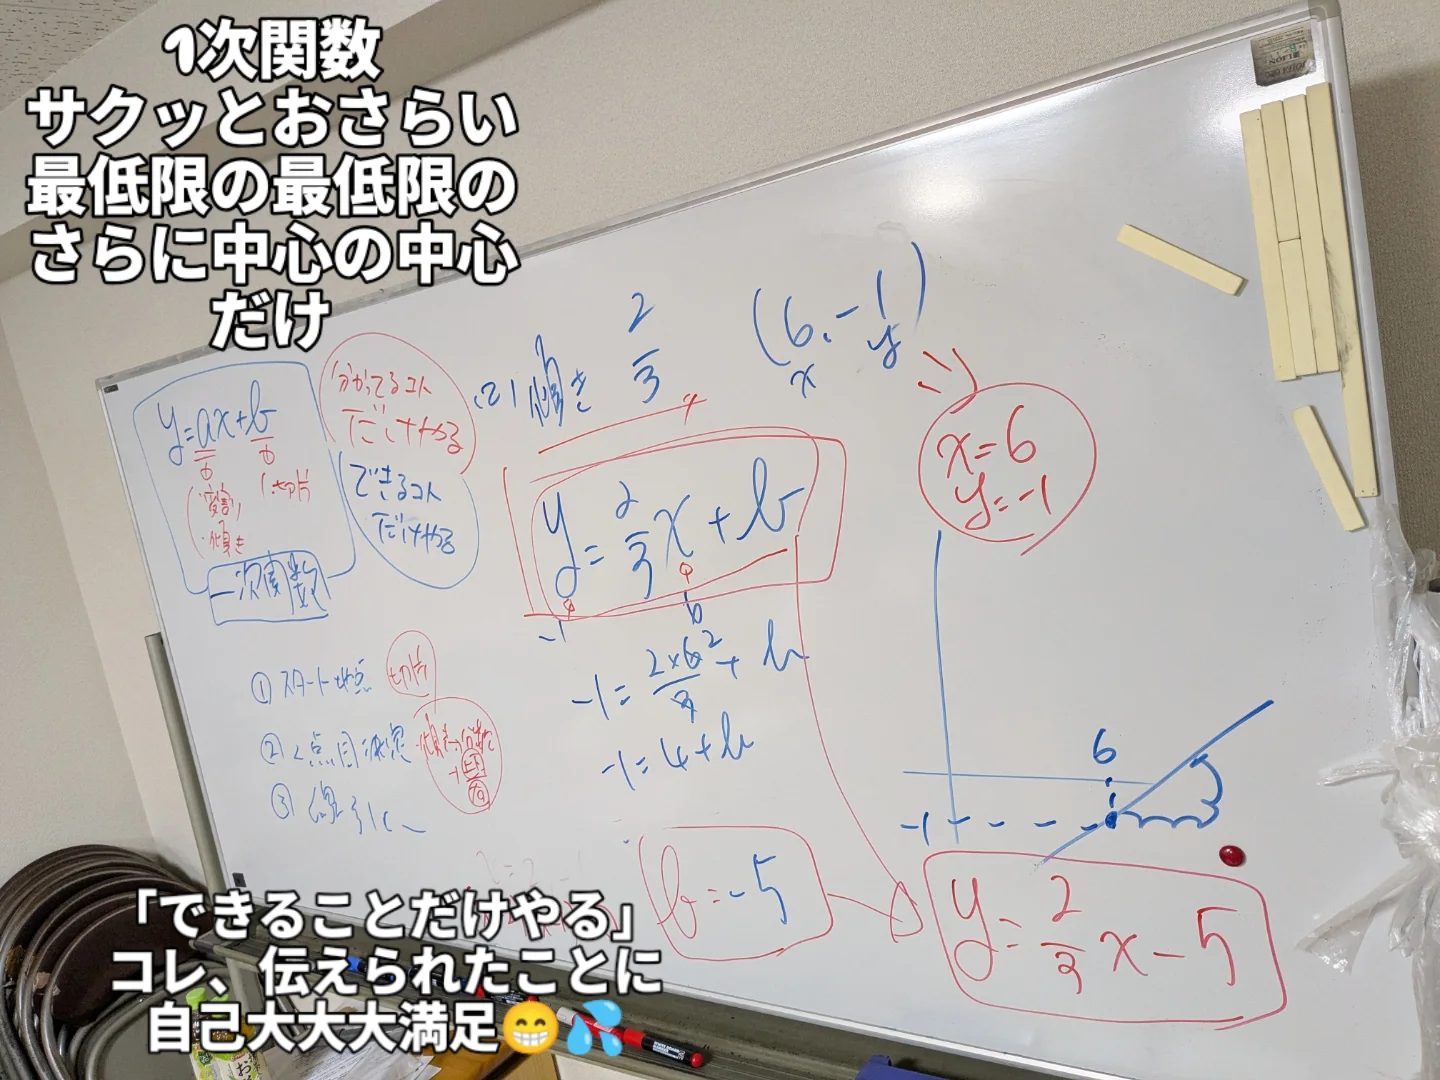 1次関数
サクッとおさらい
最低限の最低限の
さらに中心の中心
だけ
y=ax+b
変割
傾き
切片
一次関数
分かってるコト
だけやる
できるコト
だけやる
(2) 傾き 2/3 (6, -1)
x y
x=6
y=-1
y=2/3x+b
-1 6
-1=2×6/3+b
2
-1=4+b
b=-5
y=2/3x-5
① スタート地点 切片
② 2点目
③ 線引く
6
-1
「できることだけやる」
コレ、伝えられたことに
自己大大大満足😁💦